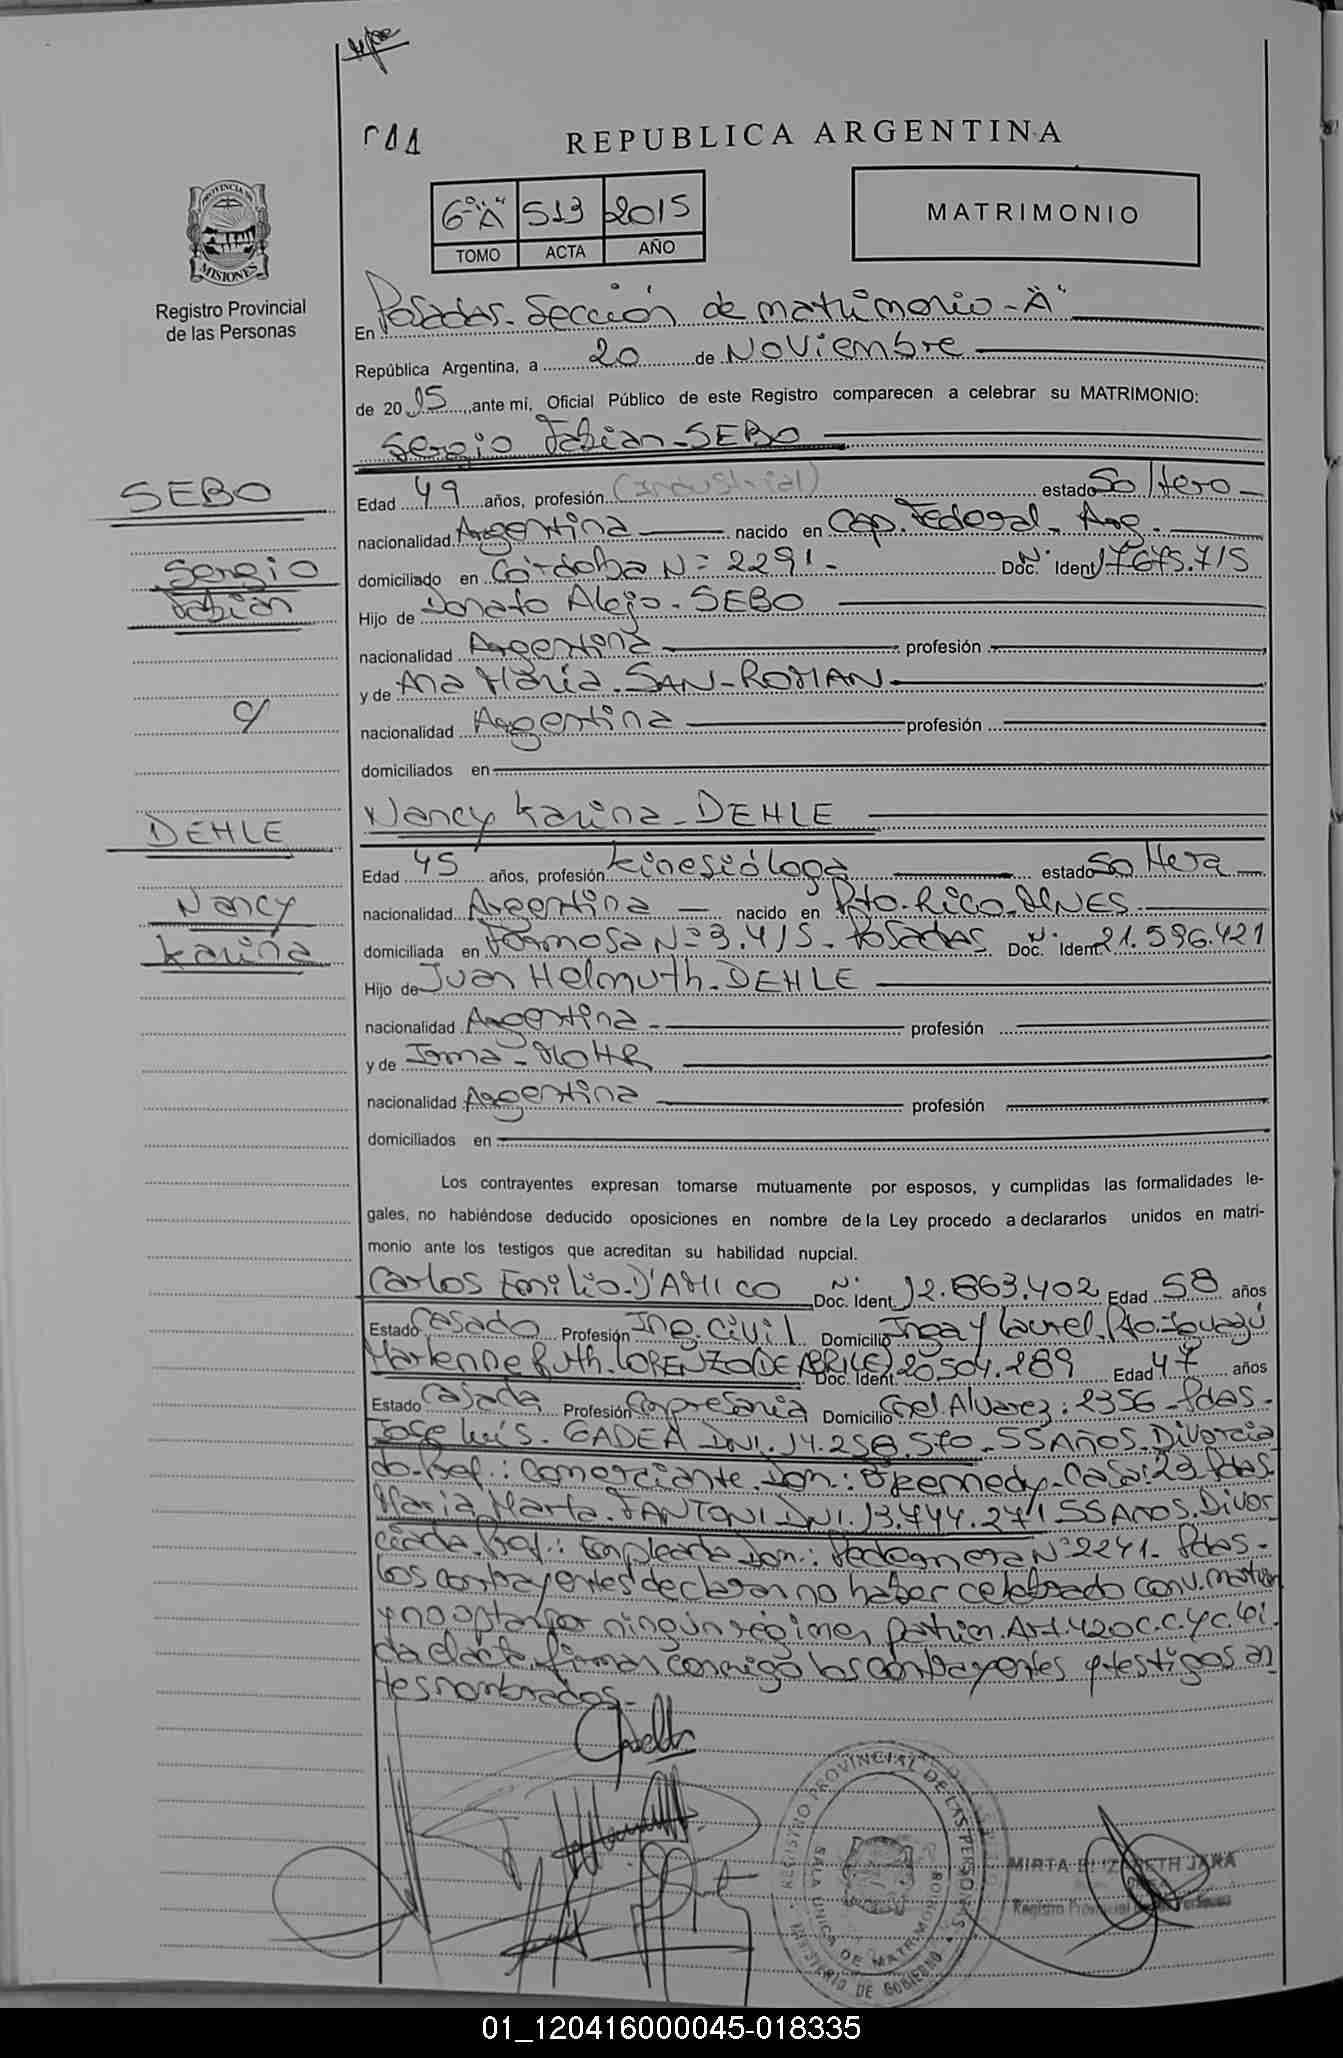 REPUBLICA ARGENTINA
6º "A" 513 2015
TOMO ACTA AÑO
MATRIMONIO
PROVINCIA DE
MISIONES
Registro Provincial
de las Personas
En Posadas - Sección de matrimonio - "A"
República Argentina, a 20 de Noviembre
de 2015, ante mi, Oficial Público de este Registro comparecen a celebrar su MATRIMONIO:
Sergio Fabian - SEBO
SEBO
Sergio
Fabian
Edad 49 años, profesión (industrial) estado Soltero -
nacionalidad Argentina nacido en Cap. Federal - Arg.
domiciliado en Córdoba Nº 2291 - Doc. Nº Ident 17675.715
Hijo de Donato Alejo - SEBO
nacionalidad Argentina profesión
y de Ana Maria - SAN - ROMAN
c/
nacionalidad Argentina profesión
domiciliados en
DEHLE
Nancy
Karina
Nancy Karina - DEHLE
Edad 45 años, profesión Kinesióloga estado Soltera
nacionalidad Argentina - nacido en Pto. Rico - MNES
domiciliada en Formosa Nº 3.415 - Posadas Doc. Nº Ident 21.596.421
Hijo de Juan Helmuth - DEHLE
nacionalidad Argentina - profesión
y de Irma - MOHR
nacionalidad Argentina profesión
domiciliados en
Los contrayentes expresan tomarse mutuamente por esposos, y cumplidas las formalidades le-
gales, no habiéndose deducido oposiciones en nombre de la Ley procedo a declararlos unidos en matri-
monio ante los testigos que acreditan su habilidad nupcial.
Carlos Emilio - D'AMICO Doc. Nº Ident. 12.863.402 Edad 58 años
Estado Casado Profesión Ing. Civil Domicilio Inga y Laurel. Pto. Iguazú
Marlenne Ruth - LORENZO (DE ABRILE) Doc. Ident. 20504.289 Edad 47 años
Estado Casada Profesión Empresaria Domicilio Gral. Alvarez: 2356 - Pdas -
Jose Luis - GADEA DNI. 14.258.570 - 55 Años. Divorcia
do. Prof.: Comerciante. Dom.: Bº Kennedy - Casa: 23 Pdas
Maria Marta - FANTONI DNI. 13.744.271 55 Años. Divor
ciada. Prof.: Empleada Dom.: Nº 2241 - Pdas -
Los contrayentes declaran no haber celebrado conv. matrim
y no optan por ningún régimen patrim. Art. 420 C.C.yC. Lei
da el acta, firman conmigo los contrayentes y testigos an
tes nombrados -
REGISTRO PROVINCIAL DE LAS PERSONAS
SALA UNICA DE MATRIMONIOS
MINISTERIO DE GOBIERNO
MIRTA ELIZABETH JARA
Registro Provincial de las Personas
01_120416000045-018335